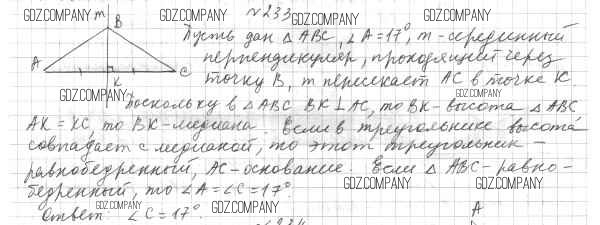 GDZ.COMPANY m GDZ.COMPANY №233 GDZ.COMPANY GDZ.COMPANY
B
Пусть дан △ABC, ∠A=17°, m-серединный
A K C
перпендикуляр, проходящий через
точку B, m пересекает AC в точке K.
GDZ.COMPANY GDZ.COMPANY
Поскольку в △ABC BK⊥AC, то BK-высота △ABC
AK=KC, то BK-медиана. Если в треугольнике высота
совпадает с медианой, то этот треугольник -
равнобедренный, AC-основание. Если △ABC-равно-
бедренный, то ∠A=∠C=17°.
GDZ.COMPANY GDZ.COMPANY
GDZ.COMPANY GDZ.COMPANY
Ответ: ∠C=17°.
A